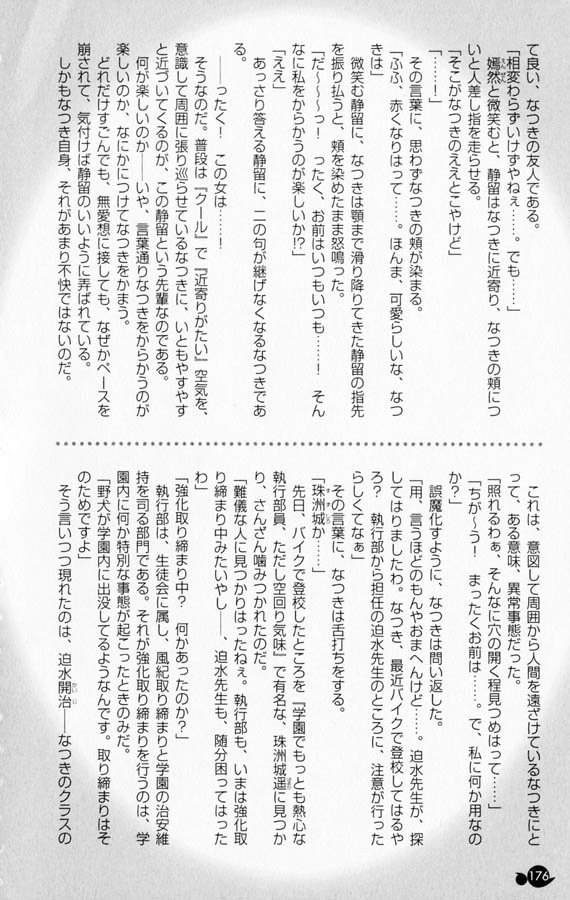 て良い、なつきの友人である。
「相変わらずいけずやねぇ……。でも……」
嫣然と微笑むと、静留はなつきに近寄り、なつきの頬につ
いと人差し指を走らせる。
「そこがなつきのええとこやけど」
「……！」
その言葉に、思わずなつきの頬が染まる。
「ふふ、赤くなりはって……。ほんま、可愛らしいな、なつ
きは」
微笑む静留に、なつきは顎まで滑り降りてきた静留の指先
を振り払うと、頬を染めたまま怒鳴った。
「だ〜〜〜っ！　ったく、お前はいつもいつも……！　そん
なに私をからかうのが楽しいか!?」
「ええ」
あっさり答える静留に、二の句が継げなくなるなつきであ
る。
――ったく！　この女は……！
そうなのだ。普段は『クール』で『近寄りがたい』空気を、
意識して周囲に張り巡らせているなつきに、いともやすやす
と近づいてくるのが、この静留という先輩なのである。
何が楽しいのか――いや、言葉通りなつきをからかうのが
楽しいのか、なにかにつけてなつきをかまう。
どれだけすごんでも、無愛想に接しても、なぜかペースを
崩されて、気付けば静留のいいように弄ばれている。
しかもなつき自身、それがあまり不快ではないのだ。
これは、意図して周囲から人間を遠ざけているなつきにと
って、ある意味、異常事態だった。
「照れるわぁ、そんなに穴の開く程見つめはって……」
「ちが〜う！　まったくお前は……。で、私に何か用なの
か？」
誤魔化すように、なつきは問い返した。
「用、言うほどのもんやおまへんけど……。迫水先生が、探
してはりましたわ。なつき、最近バイクで登校してはるや
ろ？　執行部から担任の迫水先生のところに、注意が行った
らしくてなぁ」
その言葉に、なつきは舌打ちをする。
「珠洲城か……」
先日、バイクで登校したところを『学園でもっとも熱心な
執行部員、ただし空回り気味』で有名な、珠洲城遥に見つか
り、さんざん噛みつかれたのだ。
「難儀な人に見つかりはったねぇ。執行部も、いまは強化取
り締まり中みたいやし――、迫水先生も、随分困ってはった
わ」
「強化取り締まり中？　何かあったのか？」
執行部は、生徒会に属し、風紀取り締まりと学園の治安維
持を司る部門である。それが強化取り締まりを行うのは、学
園内に何か特別な事態が起こったときのみだ。
「野犬が学園内に出没してるようなんです。取り締まりはそ
のためですよ」
そう言いつつ現れたのは、迫水開治――なつきのクラスの
176